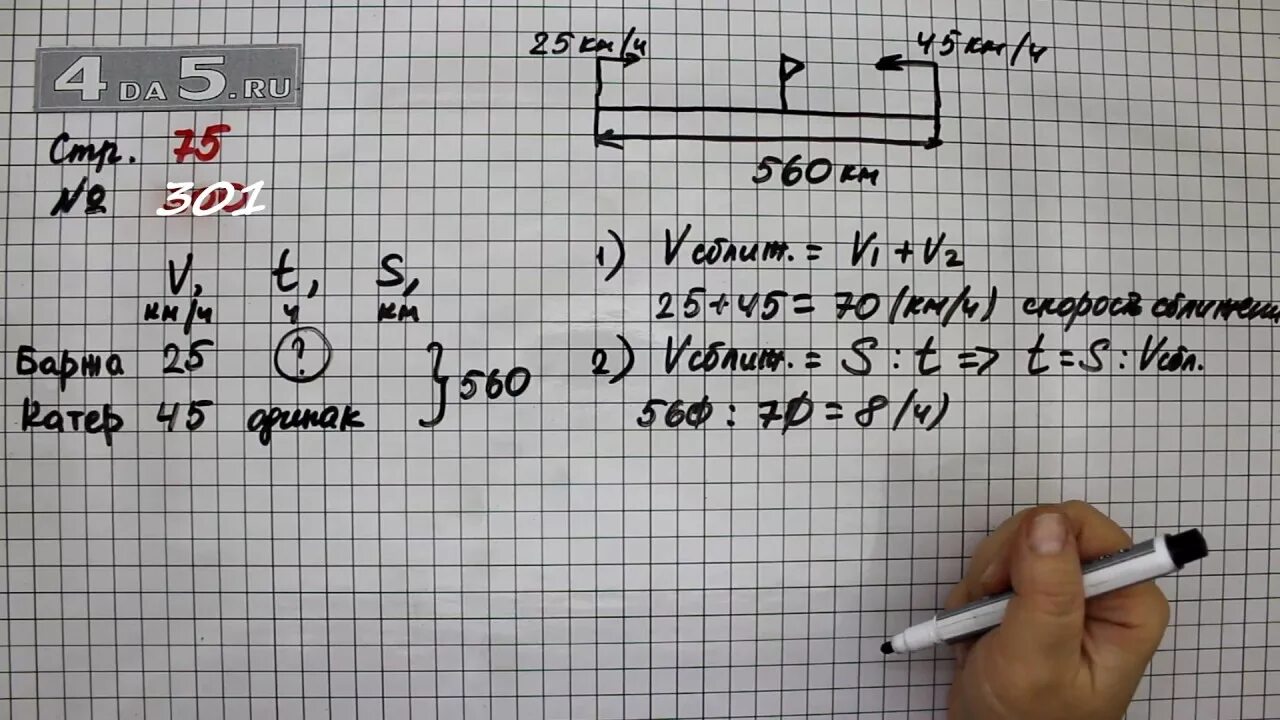 4 DA 5.RU
Стр. 75
№ 301
25 км/ч
45 км/ч
560 км
V, t, S,
км/ч ч км
Баржа 25 ?
Катер 45 одинак
560
1) Vсближ. = V1 + V2
25+45=70 (км/ч) скорость сближени
2) Vсближ. = S : t => t = S : Vсбл.
560 : 70 = 8 (ч)